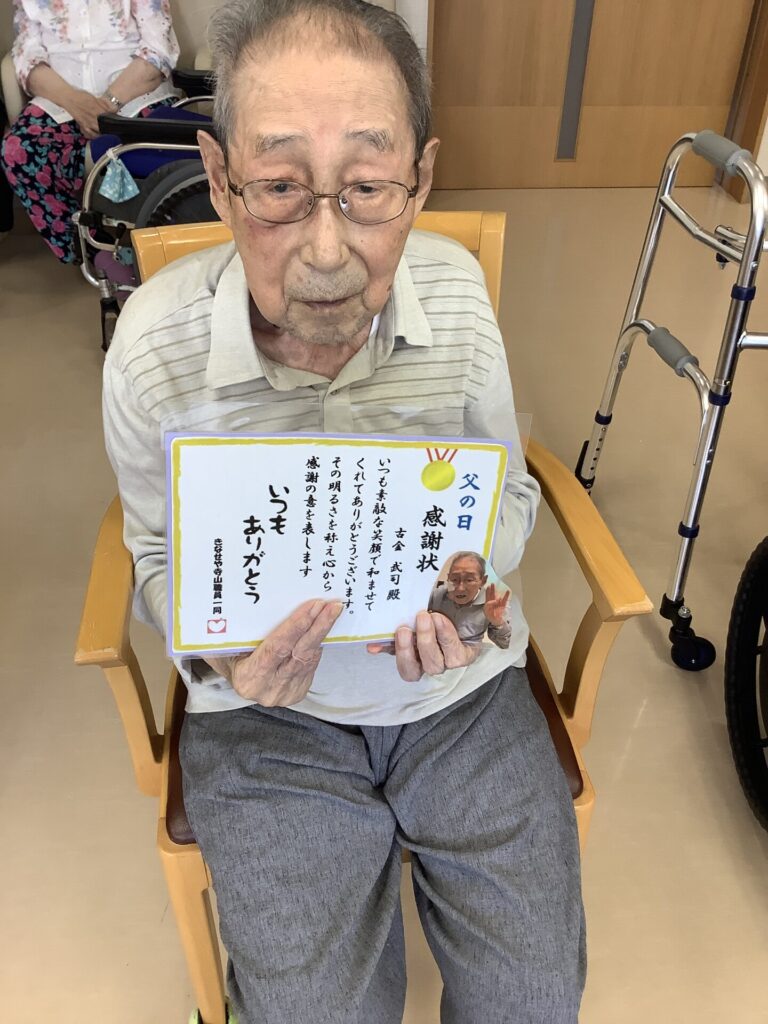 父の日
感謝状
古金 武司 殿
いつも素敵な笑顔で和ませて
くれてありがとうございます。
その明るさを称え心から
感謝の意を表します
いつも
ありがとう
きなせや寺山職員一同